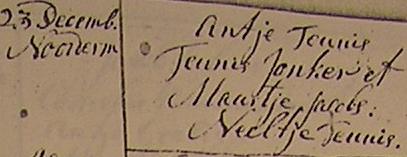 23 Decemb.
Nooderm
Antje Teunis
Teunis Jonker et
Maartje Jacobs:
Neeltje Teunis.